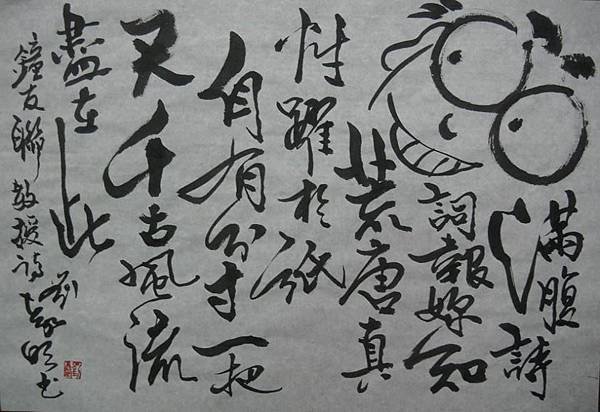 滿腹詩
詞報妳知
荒唐真
性躍於紙
自有分寸一把
叉千古風流
盡在此
鐘友聯教授詩
書